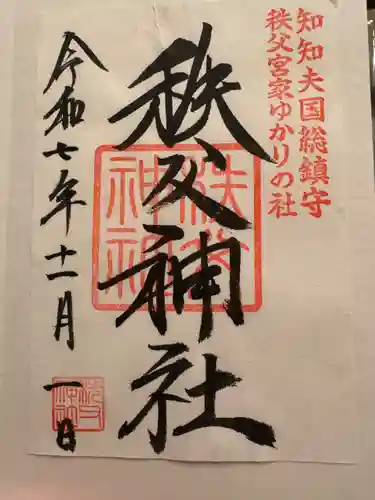 知知夫国総鎮守
秩父宮家ゆかりの社
秩父神社
秩父神社
令和七年十一月一日